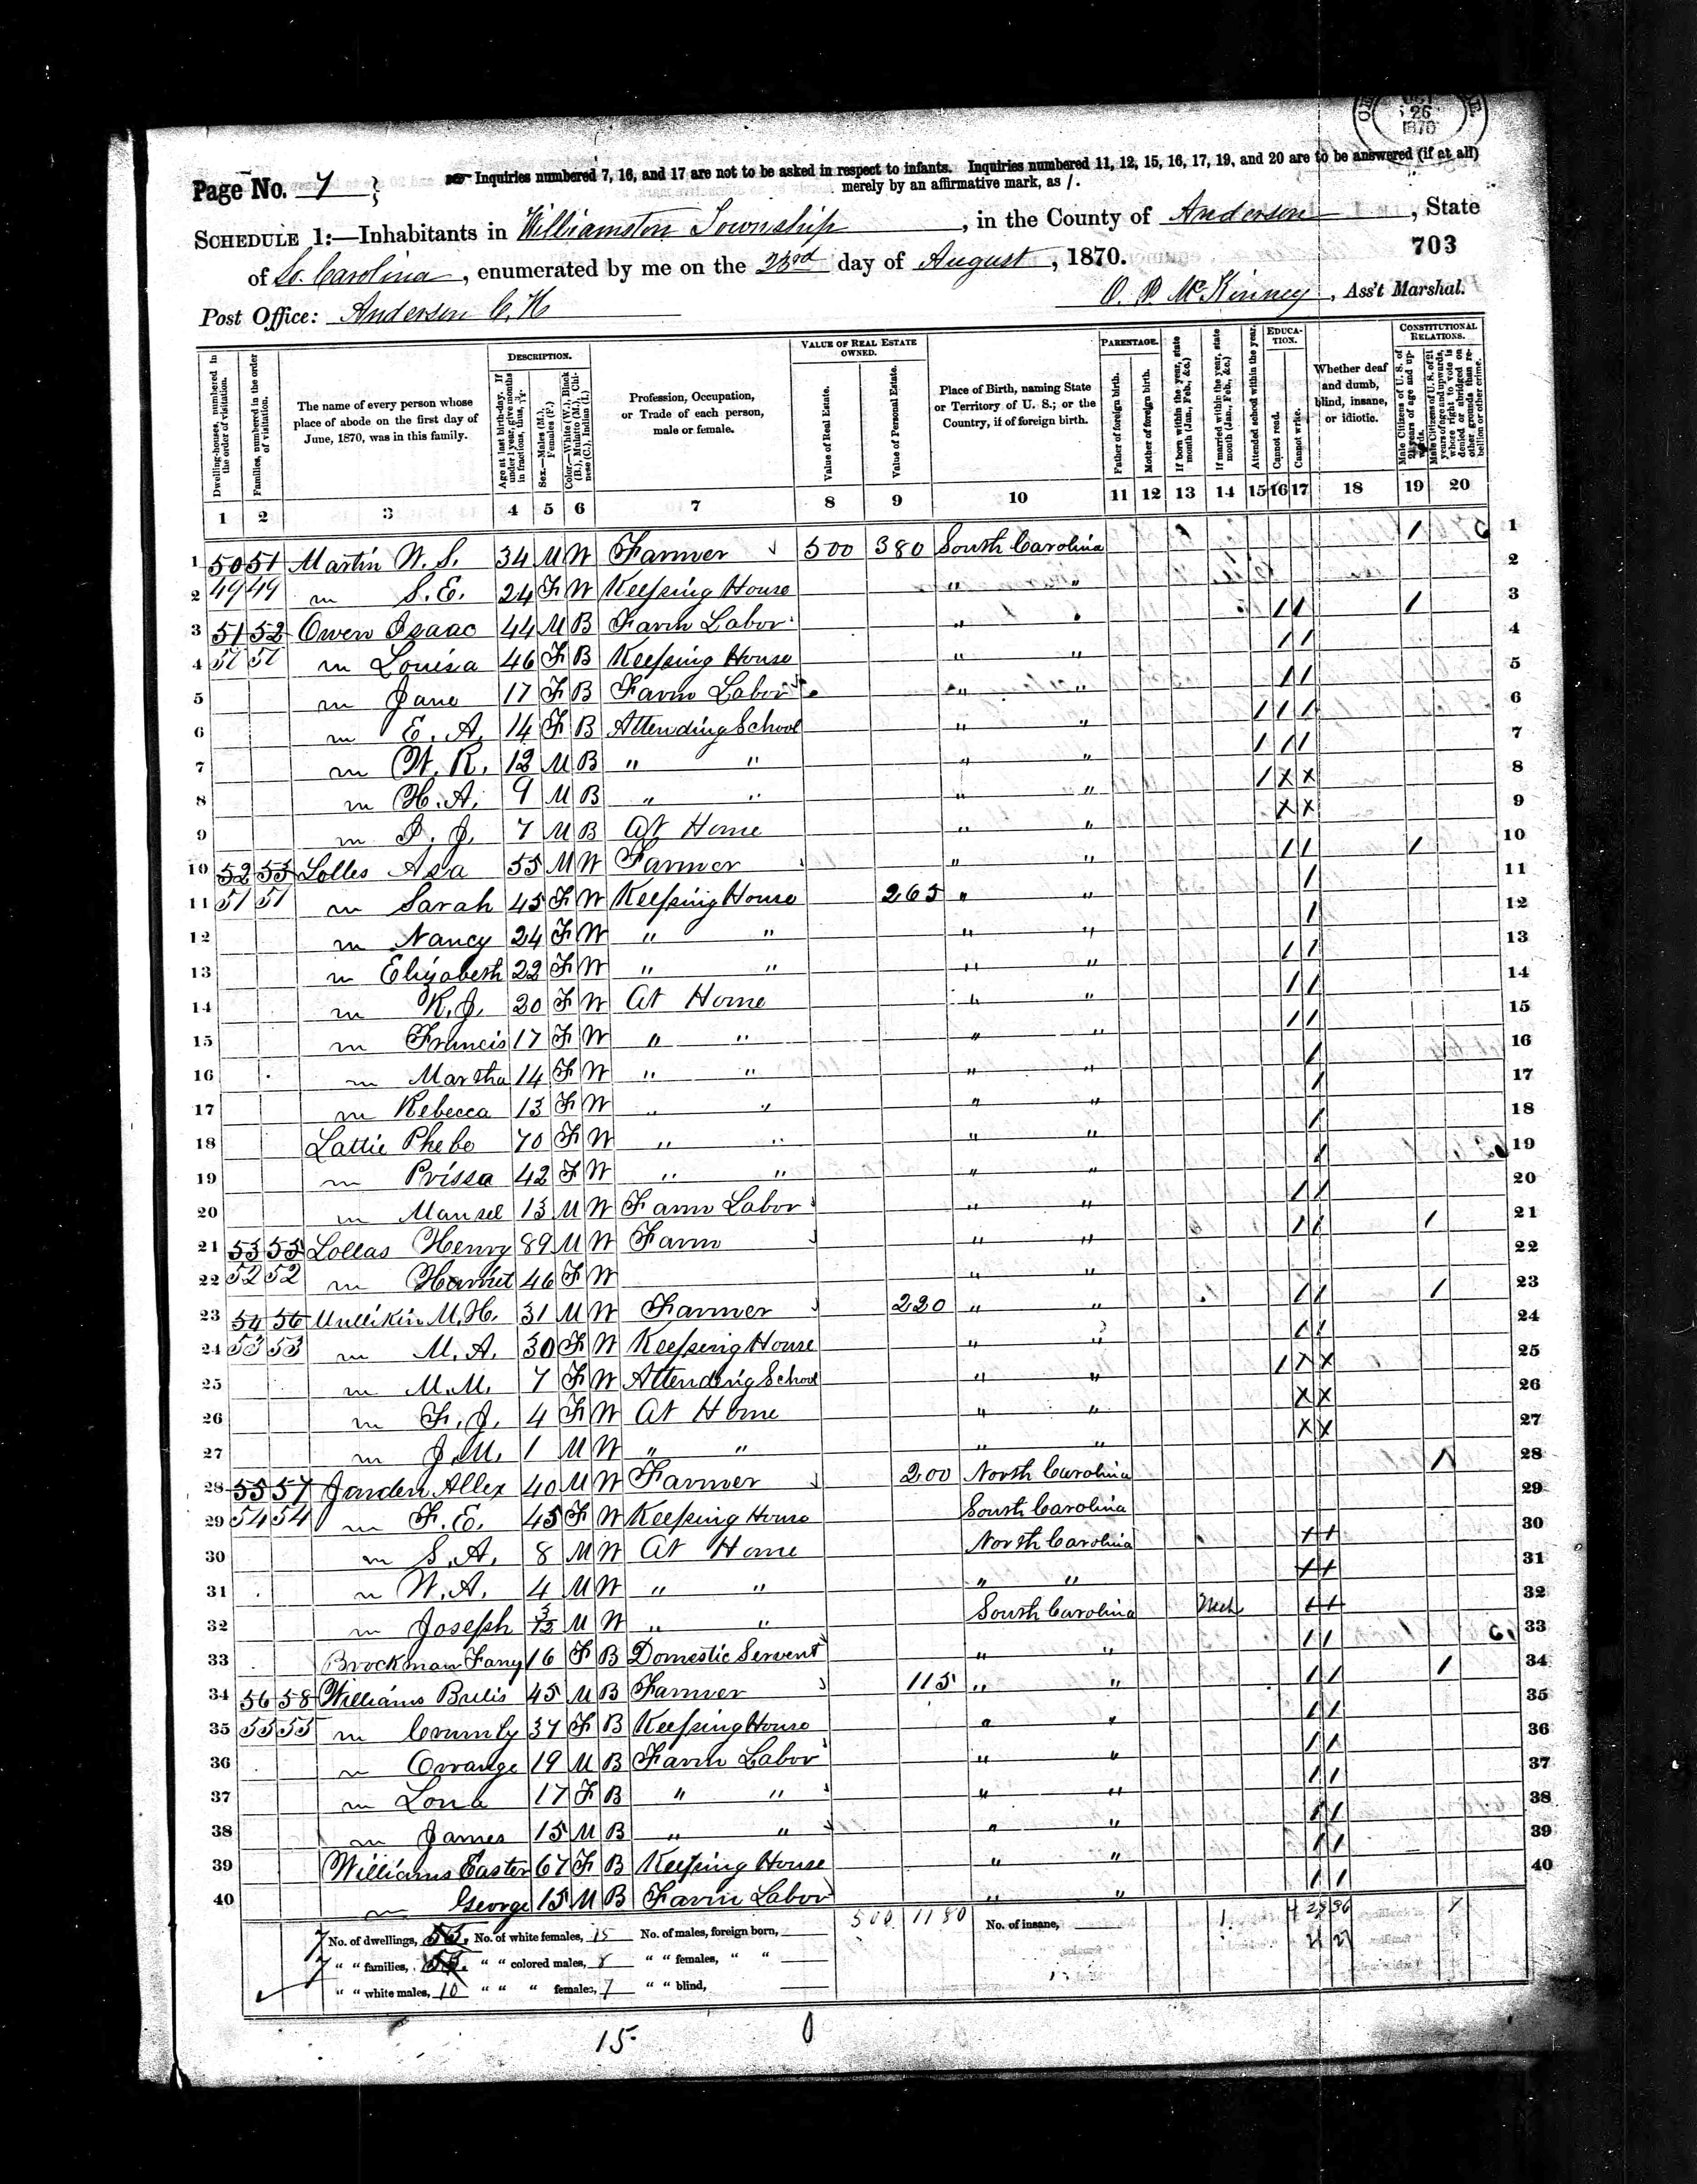 26
1870
Inquiries numbered 7, 16, and 17 are not to be asked in respect to infants. Inquiries numbered 11, 12, 15, 16, 17, 19, and 20 are to be answered (if at all)
merely by an affirmative mark, as /.
Page No. 7
SCHEDULE 1:—Inhabitants in Williamston Township, in the County of Anderson, State
703
of So. Carolina, enumerated by me on the 23rd day of August, 1870.
Post Office: Anderson C. H.
McKinney, Ass't Marshal.
Dwelling-houses, numbered in the order of visitation.
Families, numbered in the order of visitation.
The name of every person whose place of abode on the first day of June, 1870, was in this family.
DESCRIPTION.
Age at last birth-day. If under 1 year, give months in fractions, thus, 3/12.
Sex.—Males (M.), Females (F.)
Color.—White (W.), Black (B.), Mulatto (M.), Chinese (C.), Indian (I.)
Profession, Occupation, or Trade of each person, male or female.
VALUE OF REAL ESTATE OWNED.
Value of Real Estate.
Value of Personal Estate.
Place of Birth, naming State or Territory of U. S.; or the Country, if of foreign birth.
PARENTAGE.
Father of foreign birth.
Mother of foreign birth.
If born within the year, state month (Jan., Feb., &c.)
If married within the year, state month (Jan., Feb., &c.)
Attended school within the year.
EDUCATION.
Cannot read.
Cannot write.
Whether deaf and dumb, blind, insane, or idiotic.
CONSTITUTIONAL RELATIONS.
Male Citizens of U. S. of 21 years of age and upwards.
Male Citizens of U. S. of 21 years of age and upwards, whose right to vote is denied or abridged on other grounds than rebellion or other crime.
1 2 3 4 5 6 7 8 9 10 11 12 13 14 15 16 17 18 19 20
1 50 51 Martin W. S. 34 M W Farmer 500 380 South Carolina / 1
2 49 49 " S. E. 24 F W Keeping House " " 2
3 51 52 Owen Isaac 44 M B Farm Labor " " / / / 3
4 " Louisa 46 F B Keeping House " " / / 4
5 " Jane 17 F B Farm Labor " " / / 5
6 " E. A. 14 F B Attending School " " / / / 6
7 " W. R. 12 M B " " " " / / / 7
8 " H. A. 9 M B " " " " / X X 8
9 " J. 7 M B At Home " " X X 9
10 52 Lolles Asa 55 M W Farmer " " / / / 10
11 51 51 " Sarah 45 F W Keeping House 265 " " / 11
12 " Nancy 24 F W " " " " / 12
13 " Elizabeth 22 F W " " " " / / 13
14 " R. J. 20 F W At Home " " / / 14
15 " Francis 17 F W " " " " / / 15
16 " Martha 14 F W " " " " / 16
17 " Rebecca 13 F W " " " " / 17
18 Lattie Phebe 70 F W " " " " / 18
19 " Prissa 42 F W " " " " / 19
20 " Mansel 13 M W Farm Labor " " / / 20
21 53 55 Lollas Henry 89 M W Farm " " / / / 21
22 52 52 " Harriet 46 F W " " 22
23 54 56 Mullikin M. H. 31 M W Farmer 220 " " / / / 23
24 53 53 " M. A. 30 F W Keeping House " " / / 24
25 " M. M. 7 F W Attending School " " / X X 25
26 " F. J. 4 F W At Home " " X X 26
27 " J. M. 1 M W " " " " X X 27
28 55 57 Allex 40 M W Farmer 200 North Carolina / 28
29 54 54 " F. E. 45 F W Keeping House South Carolina 29
30 " S. A. 8 M W At Home North Carolina + + 30
31 " W. A. 4 M W " " " " + + 31
32 " Joseph M W " " South Carolina + + 32
33 Brockman Fany 16 F B Domestic Servent " " / / 33
34 56 58 Williams 45 M B Farmer 115 " " / / / 34
35 55 55 " 37 F B Keeping House " " / / 35
36 " Orrange 19 M B Farm Labor " " / / 36
37 " Lona 17 F B " " " " / / 37
38 " James 15 M B " " " " / / 38
39 Williams Easter 67 F B Keeping House " " / / 39
40 " George 15 M B Farm Labor " " / / 40
7 No. of dwellings, No. of white females, 15 No. of males, foreign born, 500 1180 No. of insane, 1
7 " " families, " " colored males, 8 " " females, " "
" " white males, 10 " " " females, 7 " " blind,
15